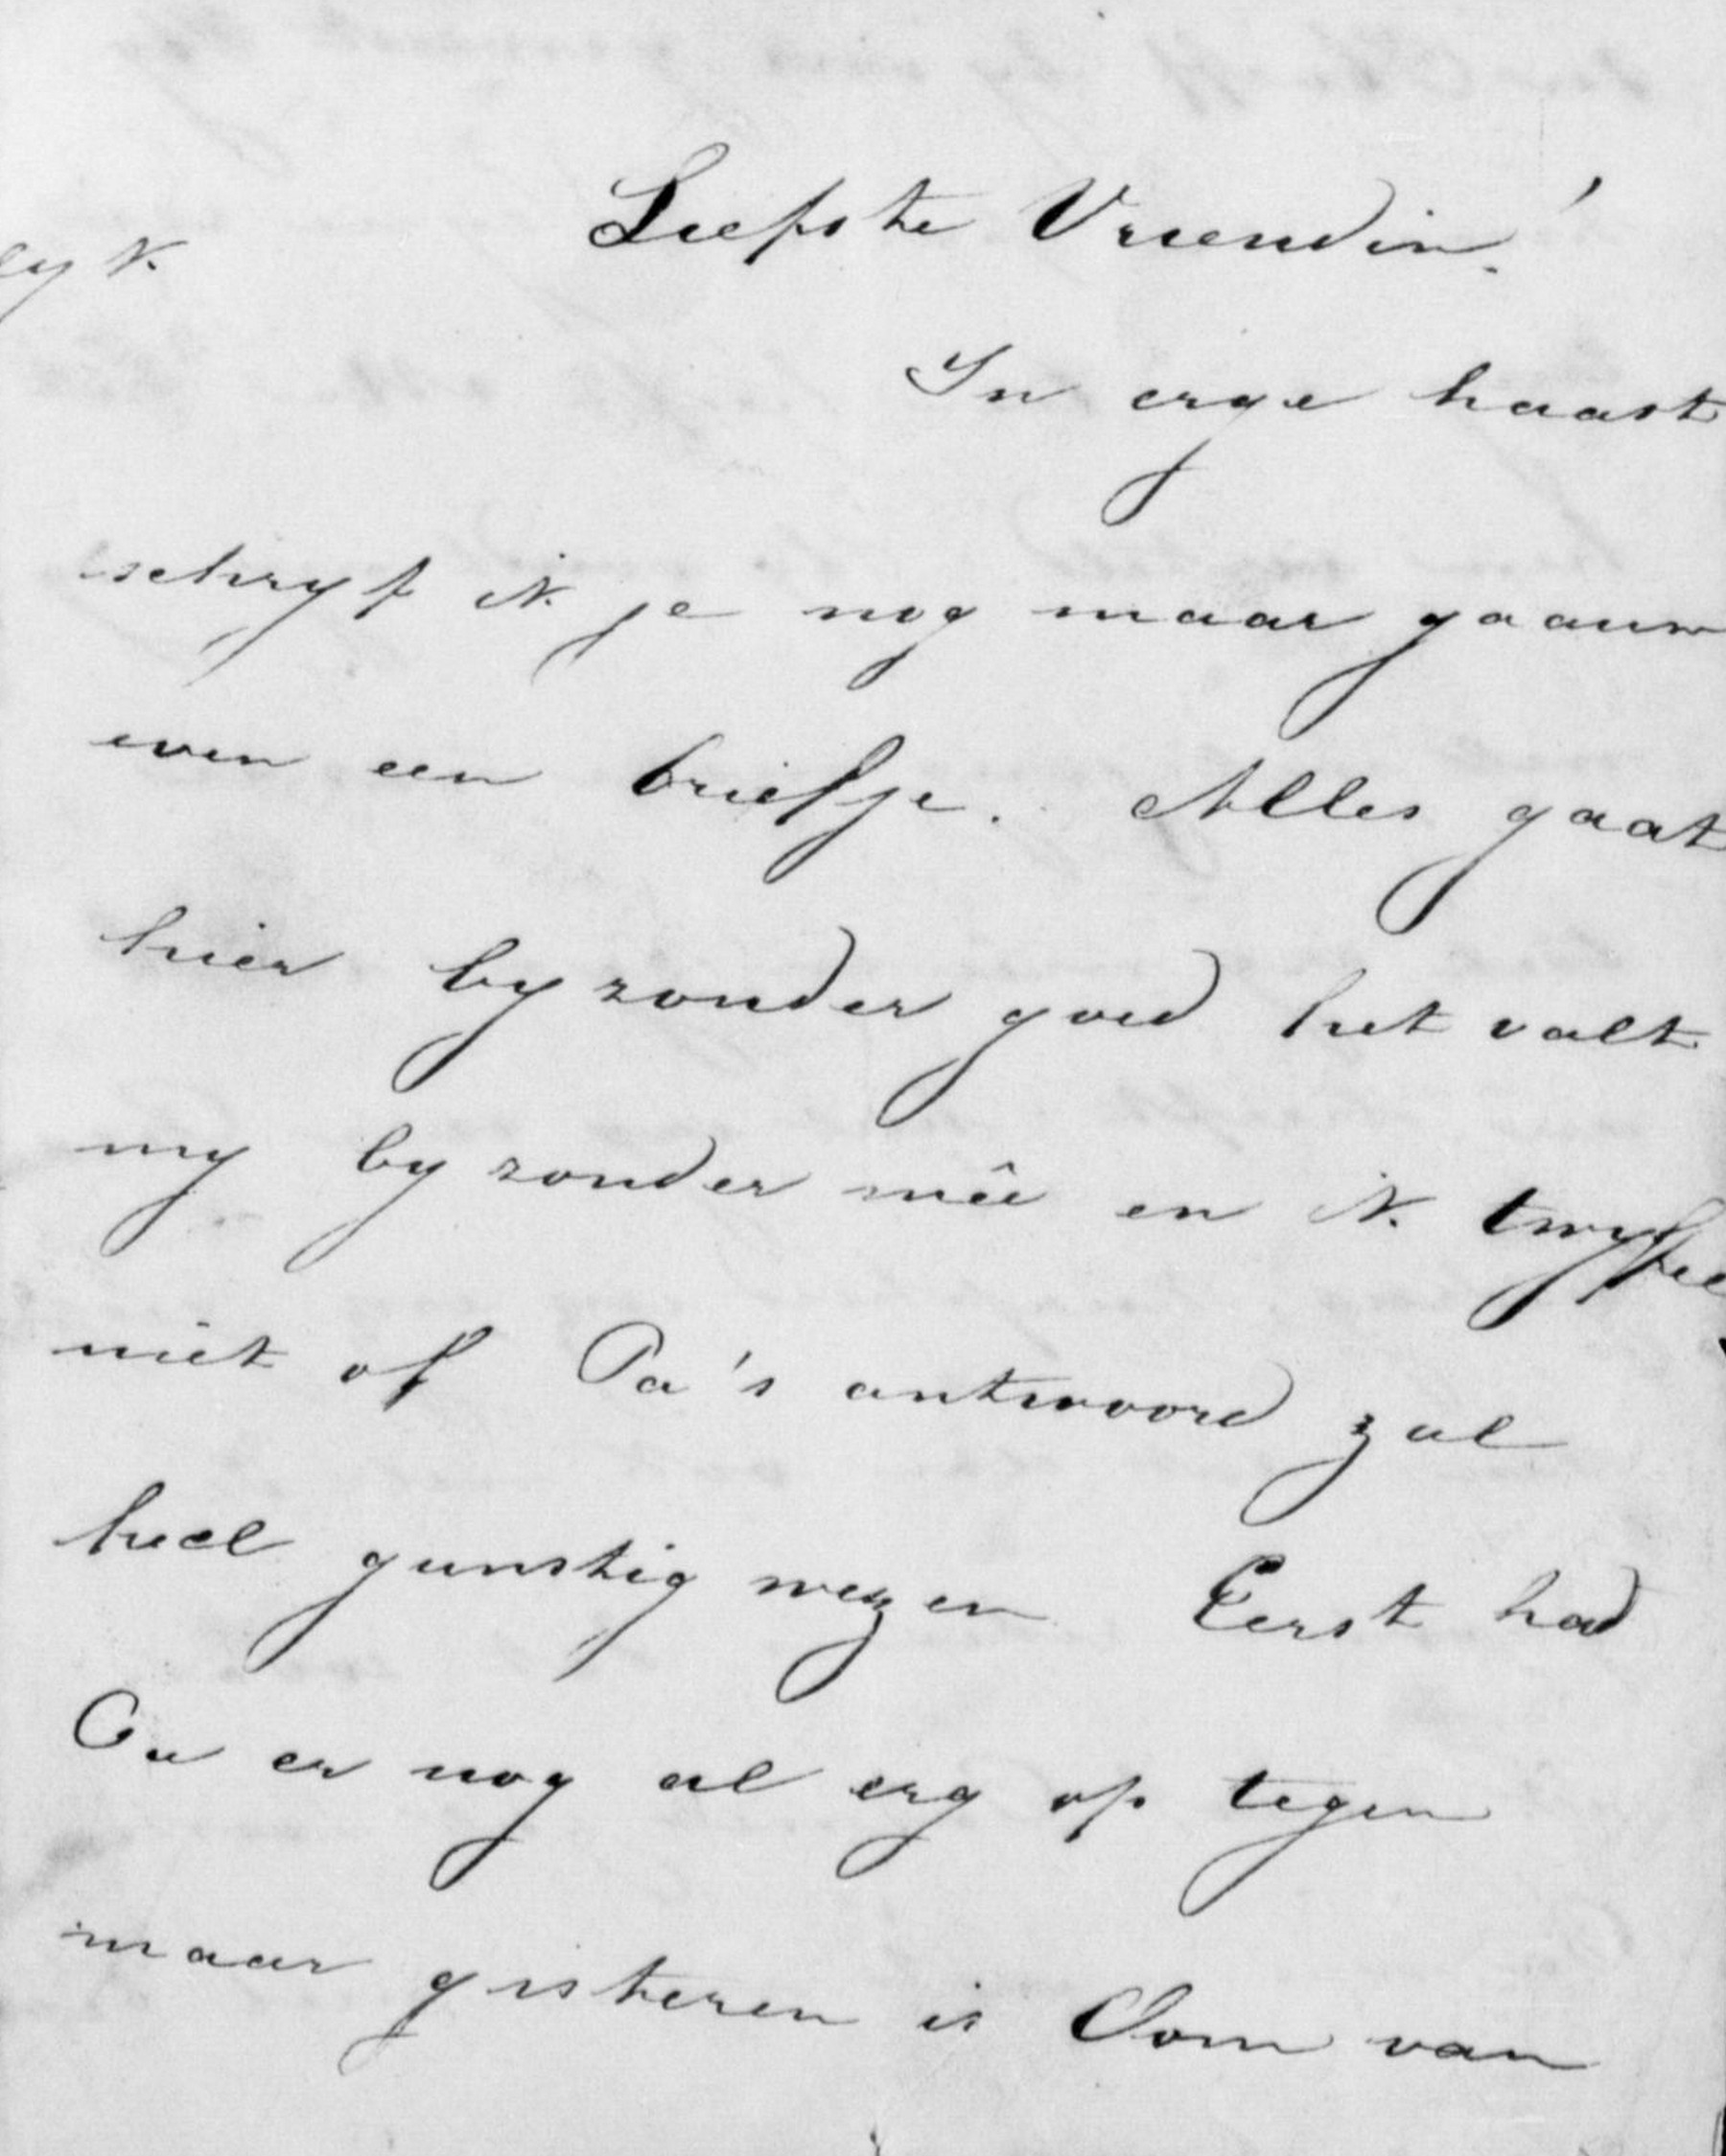 Liefste Vriendin!
In erge haast
schryf ik je nog maar gaauw
even een briefje. Alles gaat
hier byzonder goed het valt
my byzonder mêe en ik twyfel
niet of Pa's antwoord zal
heel gunstig wezen Eerst had
Ou er nog al erg op tegen
maar gisteren is Oom van